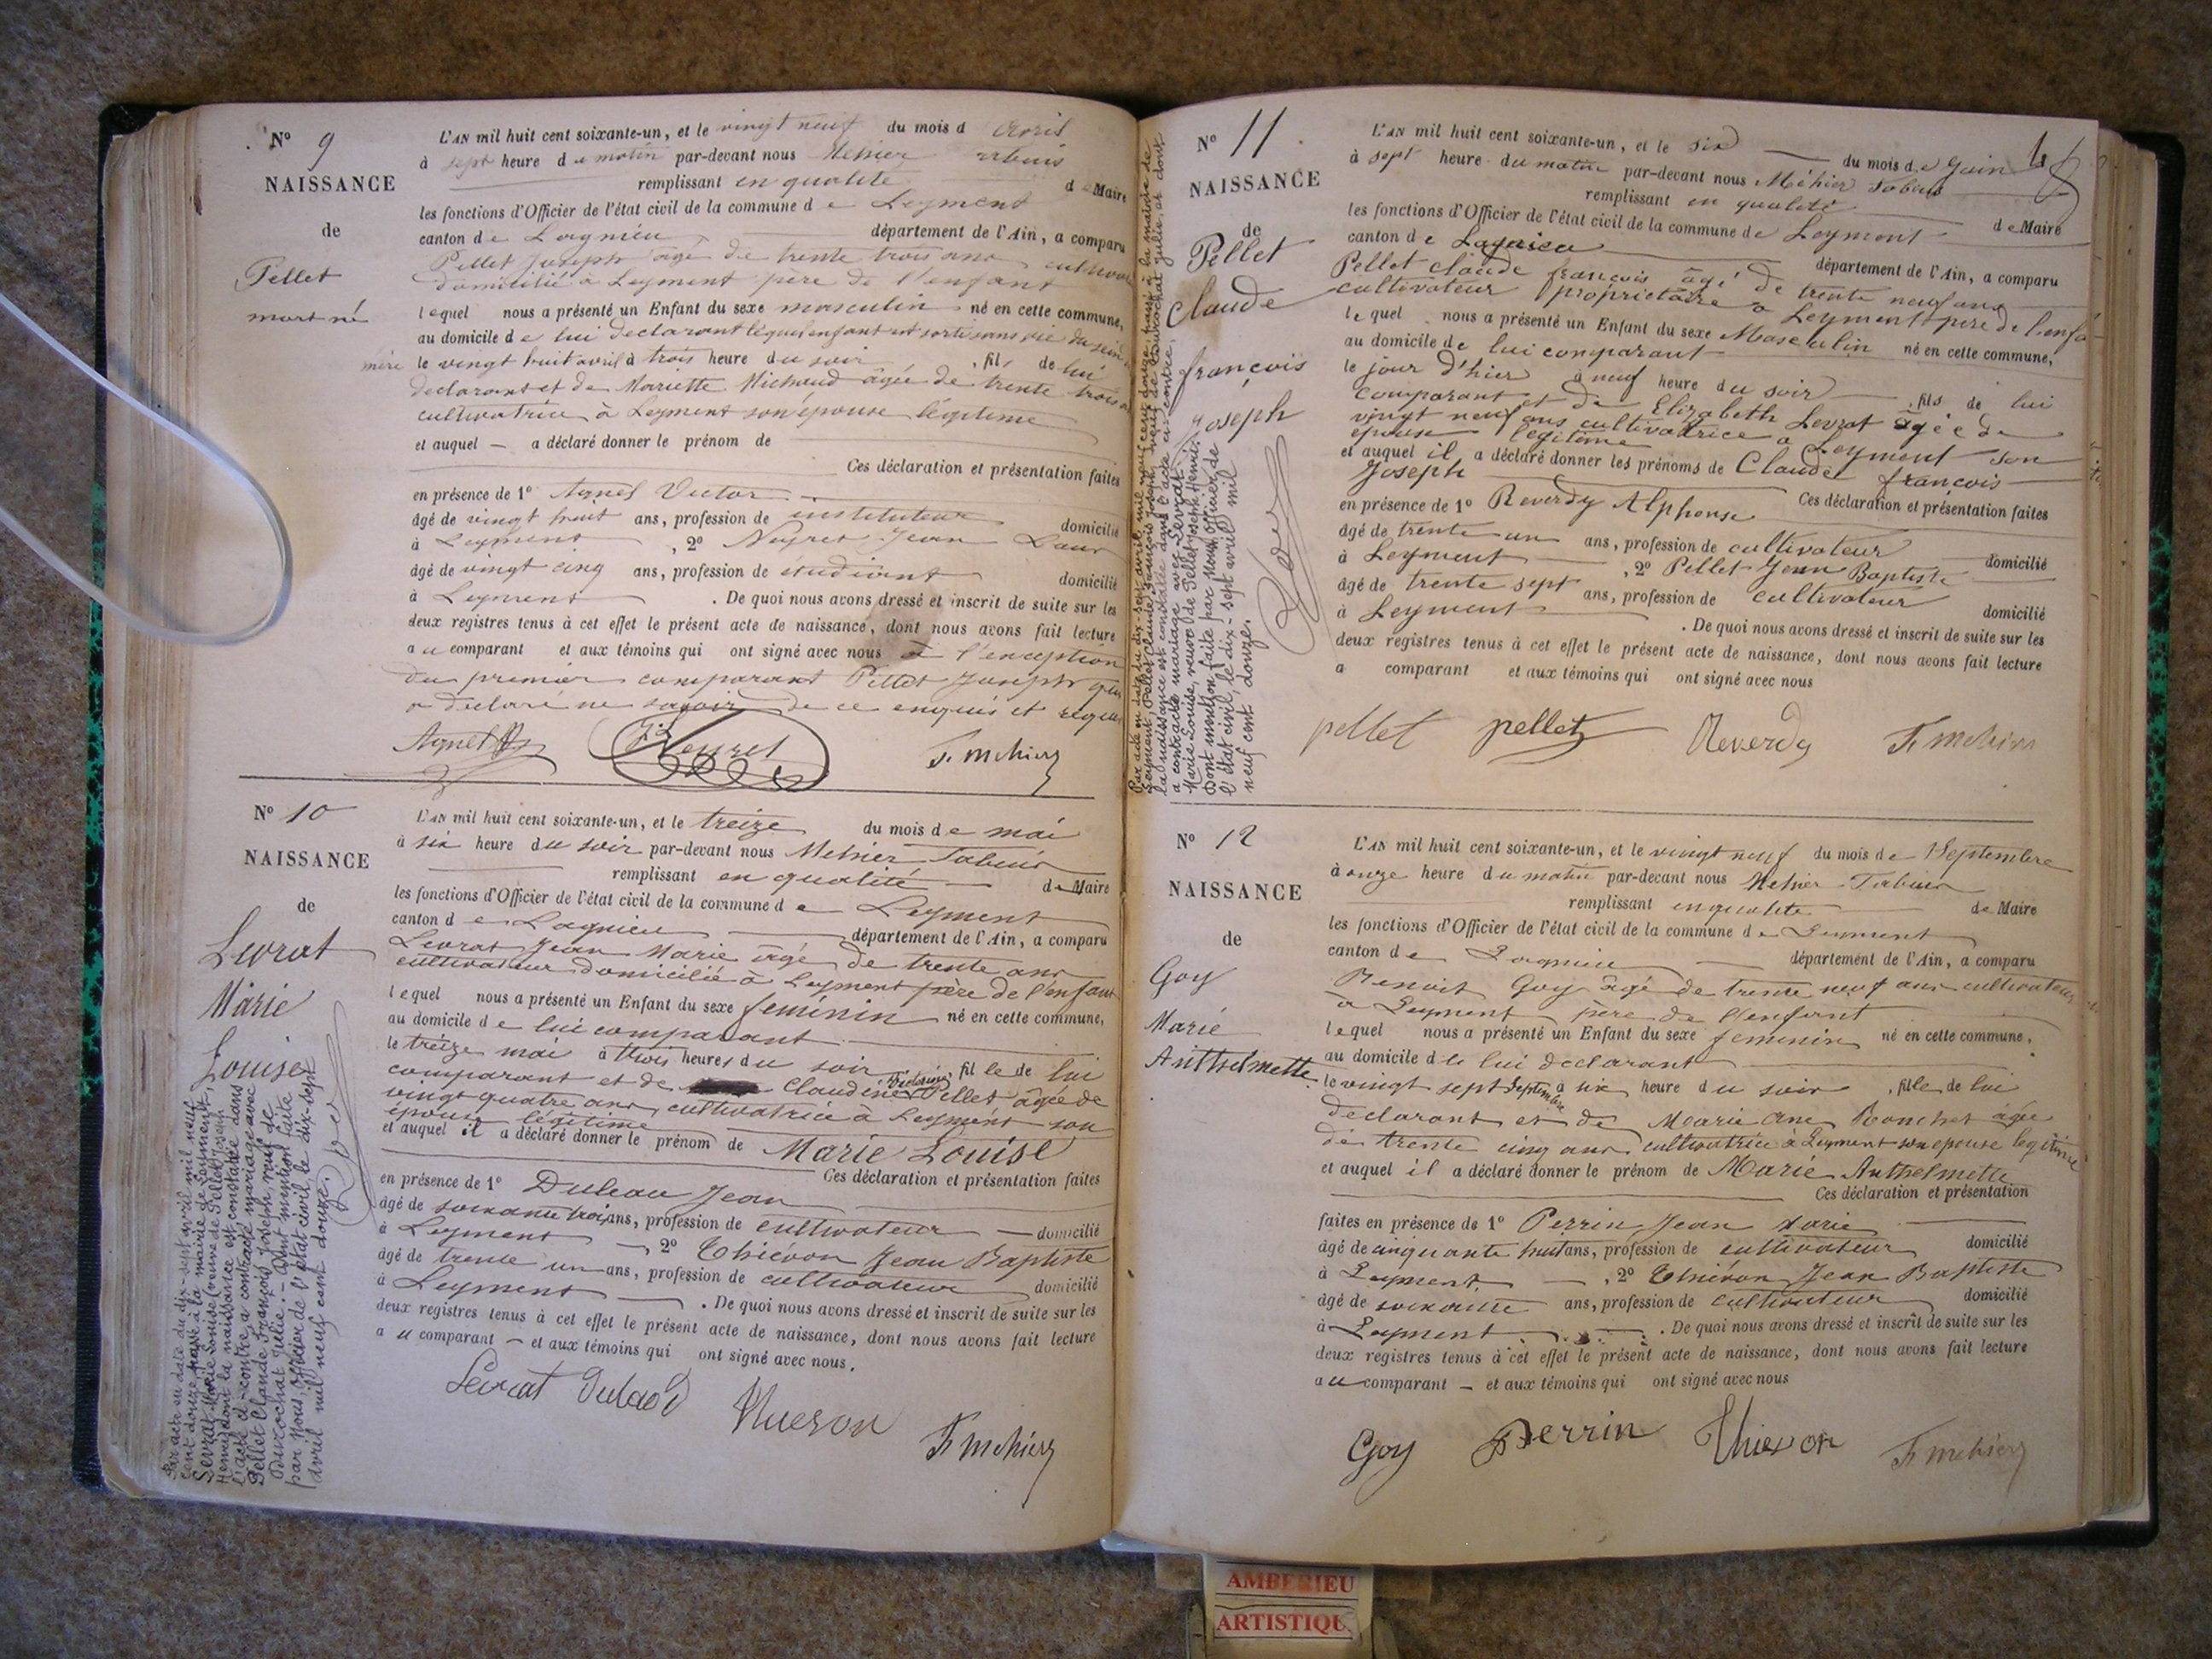 N° 9
NAISSANCE
de
Pellet
mort né
L'AN mil huit cent soixante-un, et le vingt neuf du mois d Avril
à sept heure du matin par-devant nous Mehier
remplissant en qualité de Maire
les fonctions d'Officier de l'état civil de la commune de Leyment
canton de Lagnieu département de l'Ain, a comparu
Pellet Joseph âgé de trente trois ans cultivateur
domicilié à Leyment père de l'enfant
lequel nous a présenté un Enfant du sexe masculin né en cette commune,
au domicile de lui declarant lequel enfant est sorti sans vie du sein
mère le vingt huit avril à trois heure du soir, fils de lui
declarant et de Mariette Michaud âgée de trente trois
cultivatrice à Leyment son épouse légitime
et auquel — a déclaré donner le prénom de
Ces déclaration et présentation faites
en présence de 1° Agnel Victor
âgé de vingt huit ans, profession de instituteur domicilié
à Leyment, 2° Neyret Jean
âgé de vingt cinq ans, profession de étudiant domicilié
à Leyment. De quoi nous avons dressé et inscrit de suite sur les
deux registres tenus à cet effet le présent acte de naissance, dont nous avons fait lecture
au comparant et aux témoins qui ont signé avec nous à l'exception
du premier comparant Pellet Joseph qui
a déclaré ne savoir de ce enquis et requis
Agnel Neyret F. Mehier
N° 10
NAISSANCE
de
Levrat
Marie
Louise
L'AN mil huit cent soixante-un, et le treize du mois de mai
à six heure du soir par-devant nous Mehier
remplissant en qualité — de Maire
les fonctions d'Officier de l'état civil de la commune de Leyment
canton de Lagnieu département de l'Ain, a comparu
Levrat Jean Marie âgé de trente ans
cultivateur domicilié à Leyment père de l'enfant
lequel nous a présenté un Enfant du sexe feminin né en cette commune,
au domicile de lui comparant
le treize mai à trois heures du soir, fille de lui
comparant et de Claudine Pellet âgée de
vingt quatre ans, cultivatrice à Leyment son
épouse légitime
et auquel il a déclaré donner le prénom de Marie Louise
Ces déclaration et présentation faites
en présence de 1° Duleau Jean
âgé de soixante trois ans, profession de cultivateur — domicilié
à Leyment —, 2° Thiévon Jean Baptiste
âgé de trente un ans, profession de cultivateur domicilié
à Leyment. De quoi nous avons dressé et inscrit de suite sur les
deux registres tenus à cet effet le présent acte de naissance, dont nous avons fait lecture
au comparant — et aux témoins qui ont signé avec nous.
Levrat Thievon F. Mehier
Par acte en date du dix-sept avril mil neuf
cent douze, passé à la mairie de Leyment,
Levrat Marie Louise (veuve de Pellet Joseph
Henri) dont la naissance est constatée dans
l'acte ci-contre, a contracté mariage avec
Pellet Claude François Joseph, veuf de
Durochat Julie. — Dont mention faite
par Nous, officier de l'état civil, le dix-sept
Avril mil neuf cent douze.
N° 11
NAISSANCE
de
Pellet
Claude
françois
Joseph
L'AN mil huit cent soixante-un, et le six — du mois de Juin
à sept heure du matin par-devant nous Méhier
remplissant en qualité de Maire
les fonctions d'Officier de l'état civil de la commune de Leyment
canton de Lagnieu département de l'Ain, a comparu
Pellet claude françois âgé de trente neuf ans
cultivateur propriétaire a Leyment père de l'enfa
lequel nous a présenté un Enfant du sexe Masculin né en cette commune,
au domicile de lui comparant
le jour d'hier à neuf heure du soir, fils de lui
comparant et de Elizabeth Levrat âgée de
vingt neuf ans cultivatrice a Leyment son
épouse légitime
et auquel il a déclaré donner les prénoms de Claude françois
Joseph
Ces déclaration et présentation faites
en présence de 1° Reverdy Alphonse
âgé de trente un ans, profession de cultivateur domicilié
à Leyment, 2° Pellet Jean Baptiste
âgé de trente sept ans, profession de cultivateur domicilié
à Leyment. De quoi nous avons dressé et inscrit de suite sur les
deux registres tenus à cet effet le présent acte de naissance, dont nous avons fait lecture
a comparant et aux témoins qui ont signé avec nous
pellet pellet Reverdy F. Mehier
Par acte en date du dix-sept avril mil neuf cent douze, passé à la mairie de
Leyment, Pellet Claude François Joseph, veuf de Durochat Julie, et dont
la naissance est constatée dans l'acte ci-contre,
a contracté mariage avec Levrat
Marie Louise, veuve de Pellet Joseph Henri.
Dont mention faite par Nous, officier de
l'état civil, le dix-sept avril mil
neuf cent douze.
N° 12
NAISSANCE
de
Goy
Marie
Anthelmette
L'AN mil huit cent soixante-un, et le vingt neuf du mois de Septembre
à onze heure du matin par-devant nous Mehier
remplissant en qualité de Maire
les fonctions d'Officier de l'état civil de la commune de Leyment
canton de Lagnieu — département de l'Ain, a comparu
Benoit Goy âgé de trente neuf ans cultivateur
à Leyment père de l'enfant
lequel nous a présenté un Enfant du sexe feminin né en cette commune,
au domicile de lui declarant
le vingt sept Septembre à six heure du soir, fille de lui
declarant et de Marie Ane Bouchet âgée
de trente cinq ans cultivatrice à Leyment son epouse legitime
et auquel il a déclaré donner le prénom de Marie Anthelmette
Ces déclaration et présentation
faites en présence de 1° Perrin Jean Marie
âgé de cinquante huit ans, profession de cultivateur domicilié
à Leyment —, 2° Thiévon Jean Baptiste
âgé de soixante ans, profession de cultivateur domicilié
à Leyment. De quoi nous avons dressé et inscrit de suite sur les
deux registres tenus à cet effet le présent acte de naissance, dont nous avons fait lecture
au comparant — et aux témoins qui ont signé avec nous
Goy Perrin Thievon F. Mehier
AMBERIEU
ARTISTIQU